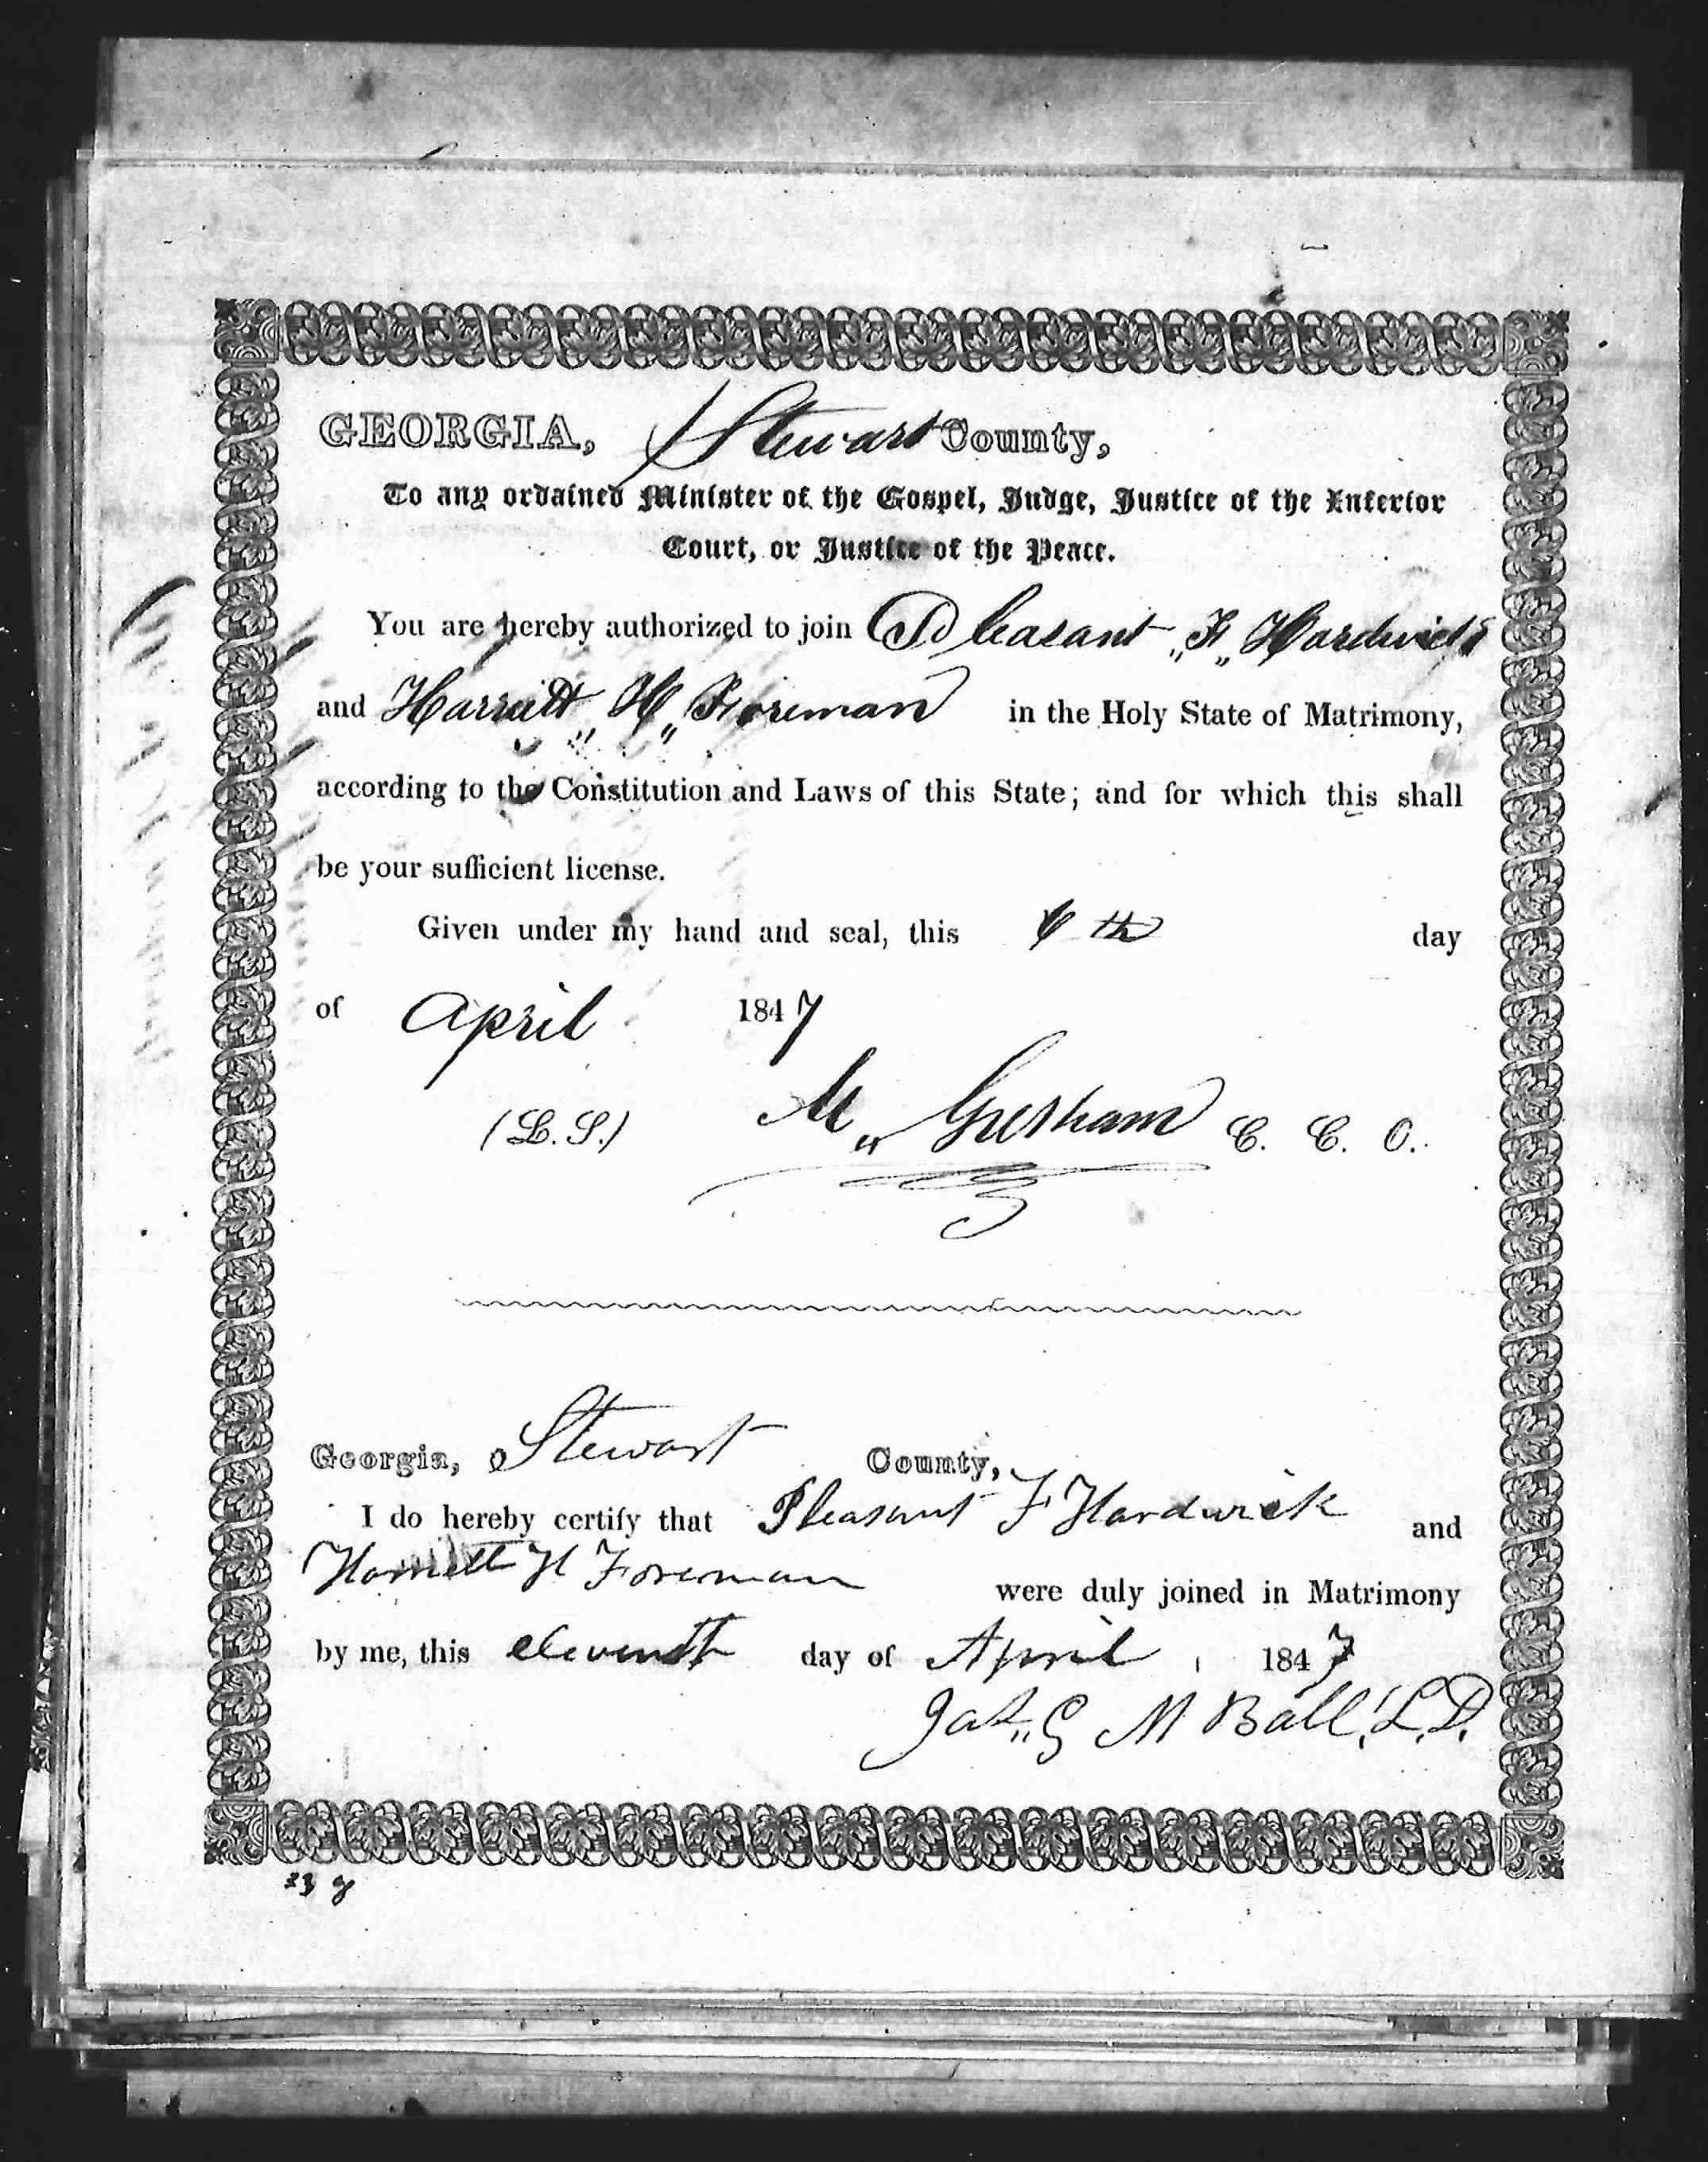 GEORGIA, Stewart County,
To any ordained Minister of the Gospel, Judge, Justice of the Inferior
Court, or Justice of the Peace.
You are hereby authorized to join Pleasant "F" Hardwick
and Harriett "H" Foreman in the Holy State of Matrimony,
according to the Constitution and Laws of this State; and for which this shall
be your sufficient license.
Given under my hand and seal, this th day
of April 1847
(L. S.) M" Gresham C. C. O.
Georgia, Stewart County,
I do hereby certify that Pleasant F Hardwick and
Harriett H Foreman were duly joined in Matrimony
by me, this eleventh day of April, 1847
Jas. G M Ball, L.D.